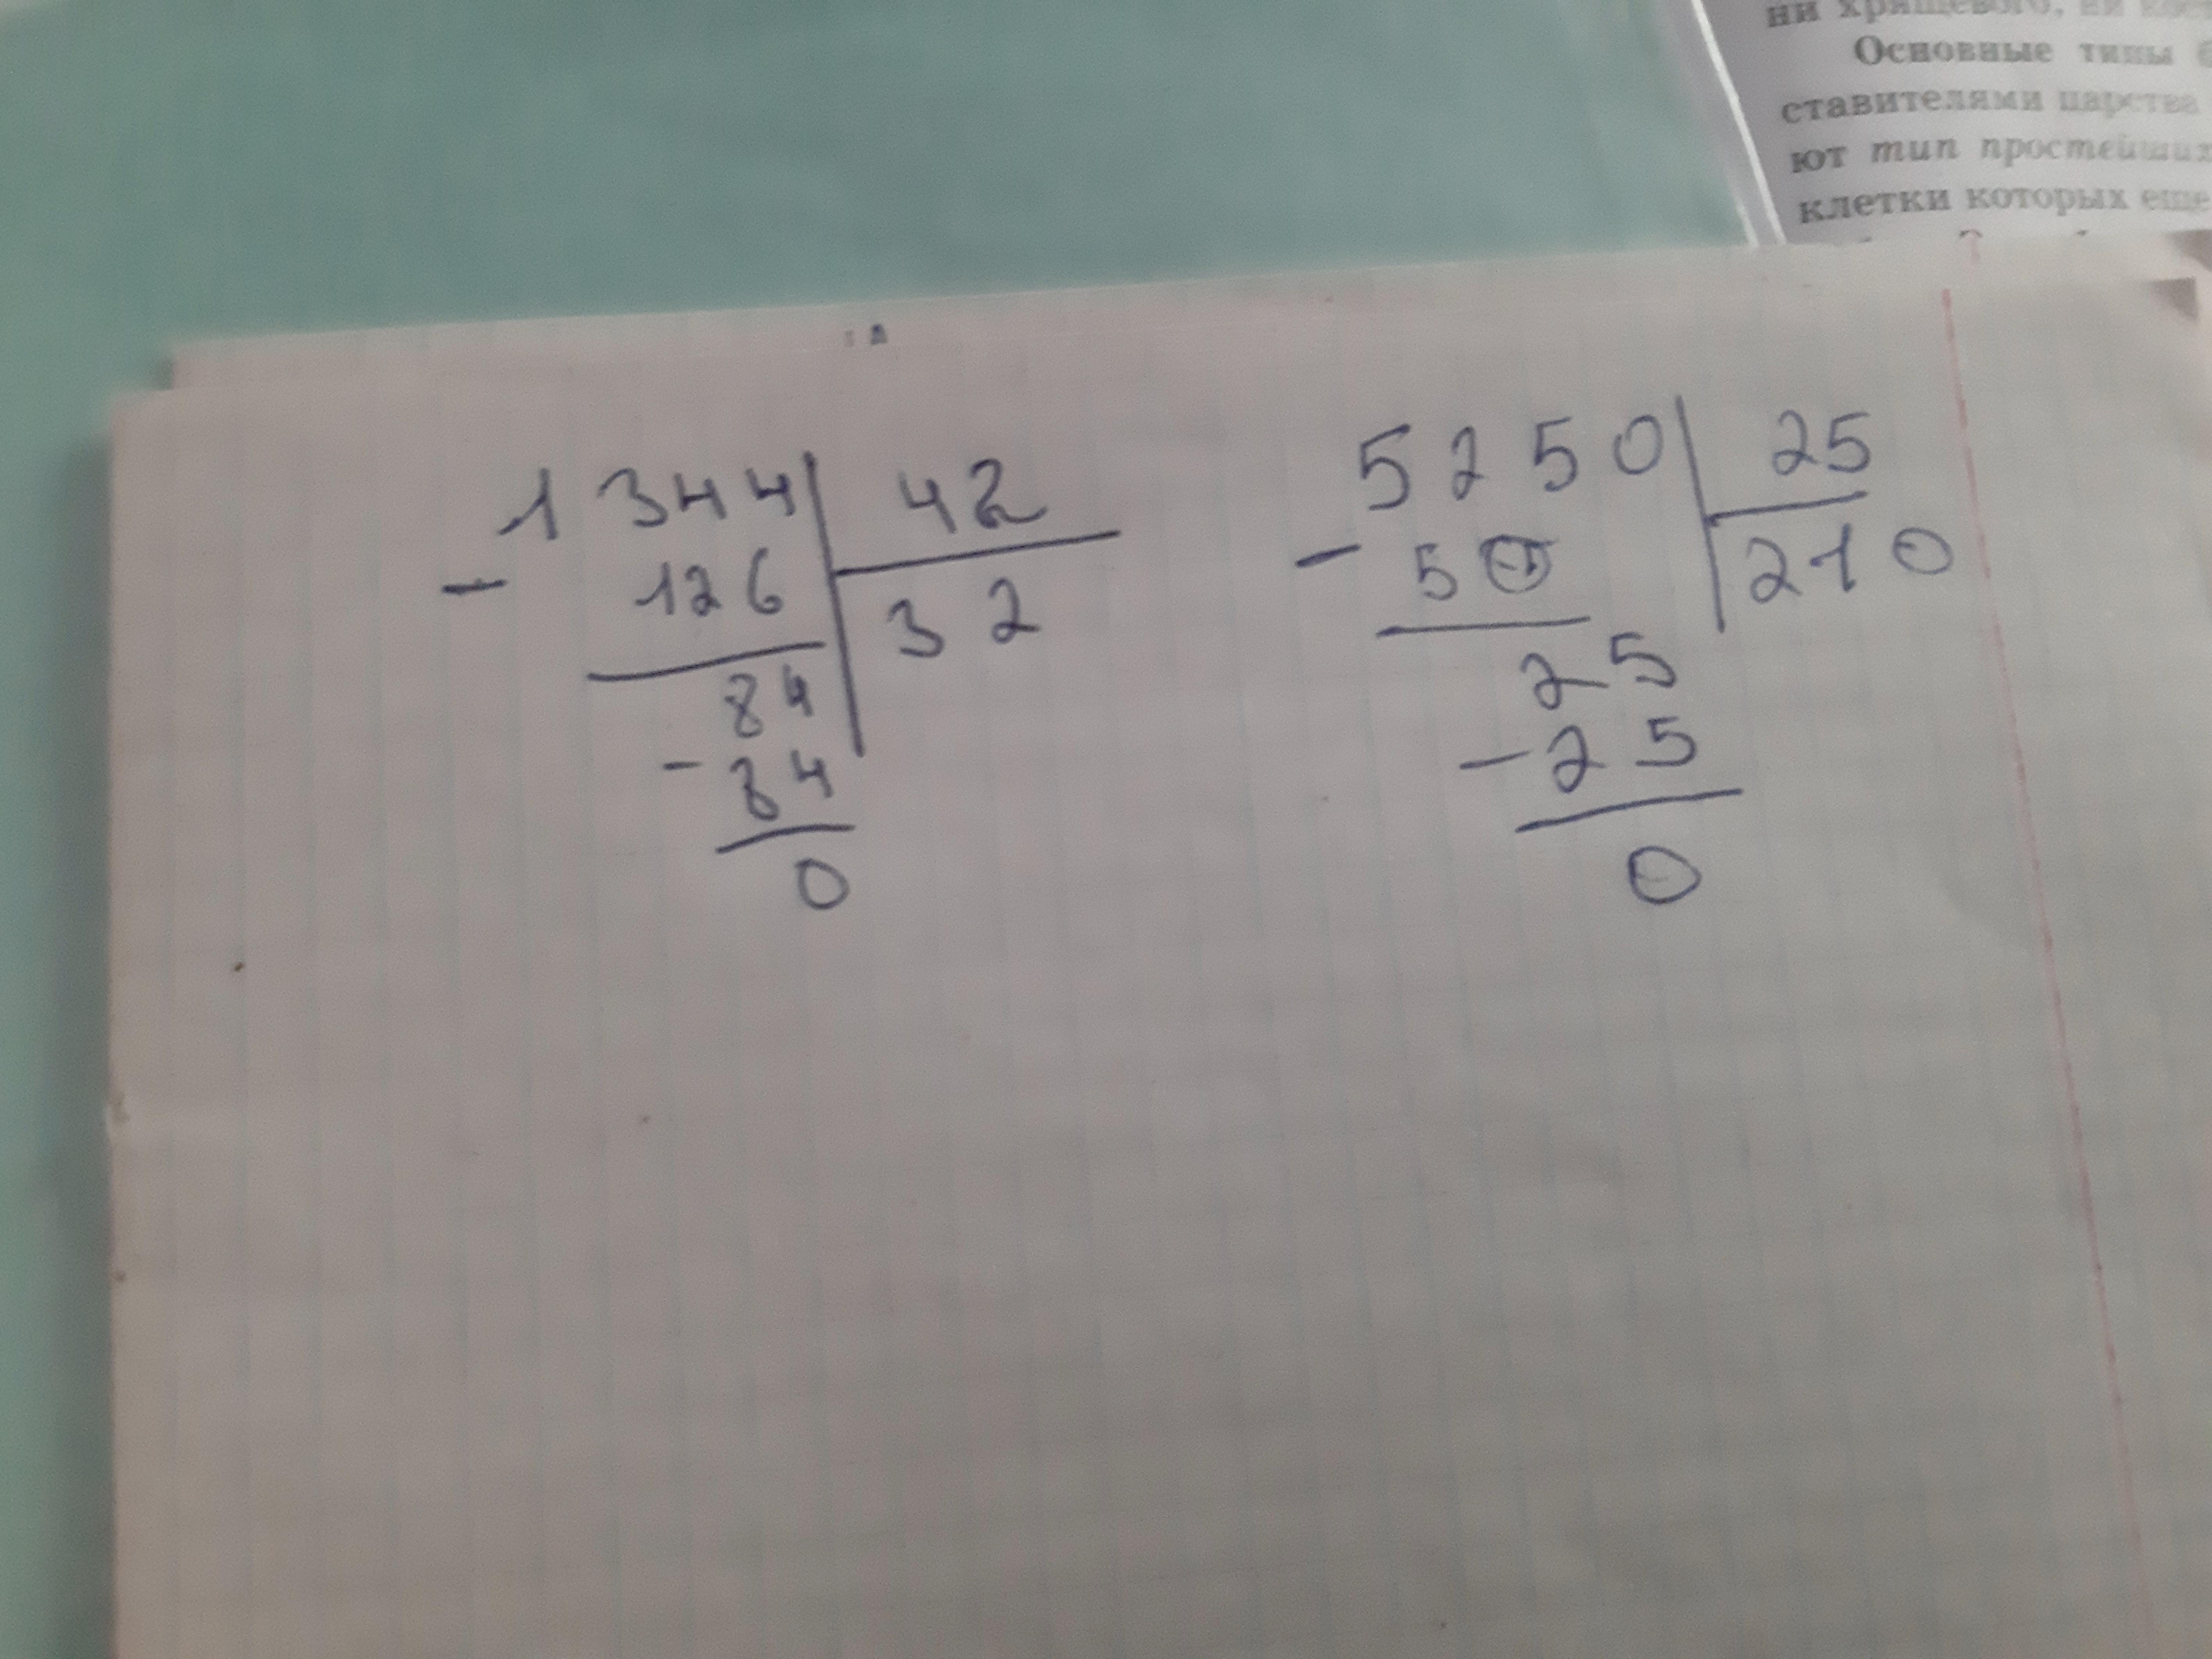 ни хрящевого, ни
Основные типы
ставителями царства
ют тип простейших
клетки которых еще
1344 42
- 126 32
84
- 84
0
5250 25
- 50 210
25
- 25
0